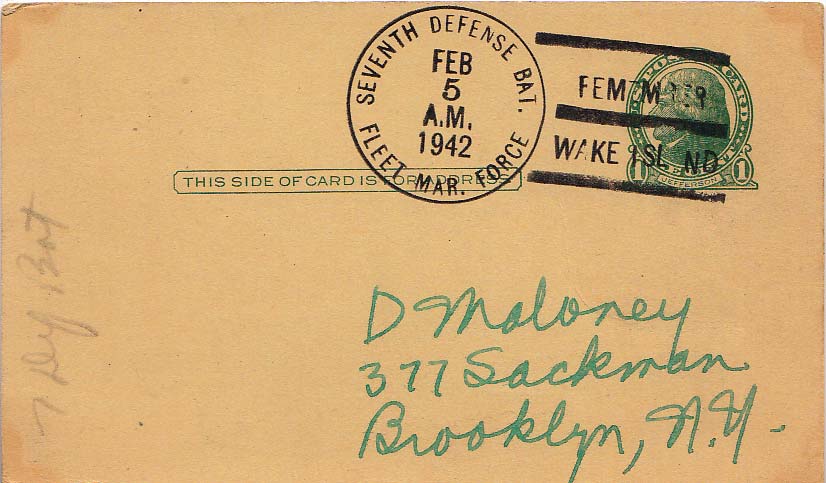 SEVENTH DEFENSE BAT.
FEB
5
A.M.
1942
FLEET MAR. FORCE
WAKE ISL ND
THIS SIDE OF CARD IS FOR ADDRESS
1 JEFFERSON 1
7 Def Bat
D Maloney
377 Sackman
Brooklyn, N.Y.